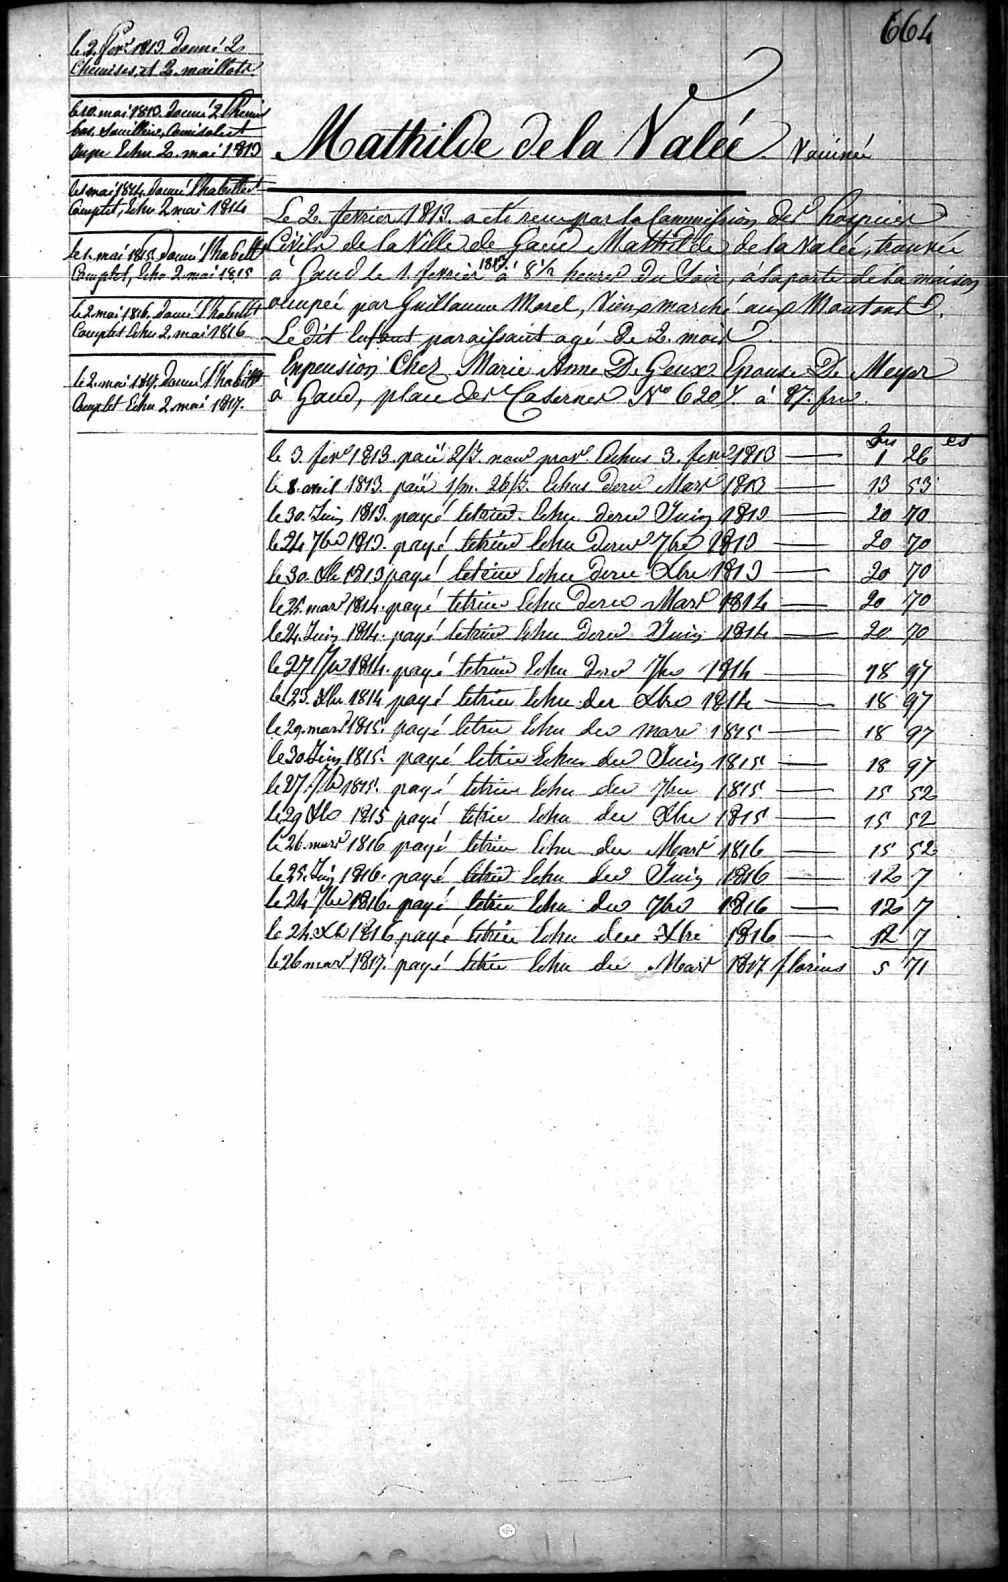 664
le 2. fevr 1813. donné 2
Chemises et 2. maillots
le 10. mai 1813. donné 2 Chemis
bas, Camisole et
Jupe Echu 2. mai 1813
le 1 mai 1814. donné l'habillet
Complet, Echu 2 mai 1814
le 1. mai 1815. donné l'habillt
Complet, Echu 2. mai 1815
le 2 mai 1816. donné l'habillt
Complet Echu 2. mai 1816
le 2. mai 1817. donné l'habillt
Complet Echu 2 mai 1817.
Mathilde de la Valéé. Vaccinée
Le 2. fevrier 1813. a eté recue par la Commission des hospices
Civils de la Ville de Gand Mathilde de la Valée, trouvée
à Gand le 1. fevrier 1813 à 8 1/2 heures du Soir, à la porte de la maison
ocupeé par Guillaume Morel, Vieux marché aux Moutons.
Le dit Enfant paraissant agé de 2. mois.
Enpension Chez Marie Anne D. Geux Epouse De Meyer
à Gand, place des Casernes No 620 7. à 87. frs.
frs cs
le 3. fevr 1813. paié 2/J. nour prov. Echus 3. fevr 1813 — 1 26
le 8. avril 1813. paié 1/m. 26/J. Echus derer Mars 1813 — 13 53
le 30. Juin 1813. payé letrim. Echu derer Juin 1813 — 20 70
le 24 7bre 1813. payé letrim Echu derer 7bre 1813 — 20 70
le 30. Xbre 1813 payé letrim Echu derer Xbre 1813 — 20 70
le 25. mars 1814. payé letrim Echu derer Mars 1814 — 20 70
le 24. Juin 1814. payé letrim Echu derer Juin 1814 — 20 70
le 27 7bre 1814. payé letrim Echu derer 7bre 1814 — 18 97
le 23. Xbre 1814 payé letrim Echu der Xbre 1814 — 18 97
le 29. mars 1815. payé letrim Echu der mars 1815 — 18 97
le 30 Juin 1815. payé letrim Echu der Juin 1815 — 18 97
le 27. 7bre 1815. payé letrim Echu der 7bre 1815 — 15 52
le 29 Xbre 1815 payé letrim Echu der Xbre 1815 — 15 52
le 26. mars 1816 payé letrim Echu der Mars 1816 — 15 52
le 25. Juin 1816. payé letrim Echu der Juin 1816 — 12 7
le 24 7bre 1816. payé letrim Echu der 7bre 1816 — 12 7
le 24. Xbre 1816 payé letrim Echu der Xbre 1816 — 12 7
le 26 mars 1817. payé letrim Echu der Mars 1817 florins 5 71